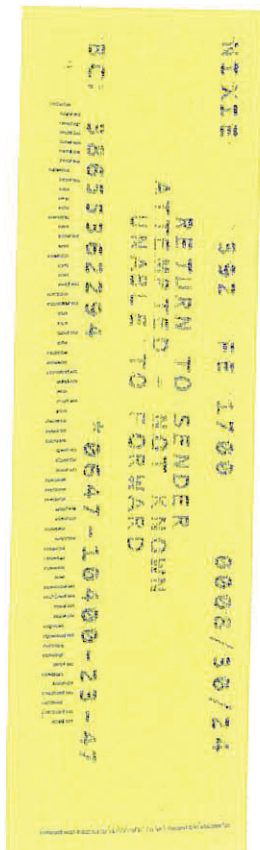 NIXIE 392 FE 1760 0008/30/24
RETURN TO SENDER
ATTEMPTED - NOT KNOWN
UNABLE TO FORWARD
BC: 38655362294 *0647-16400-23-47